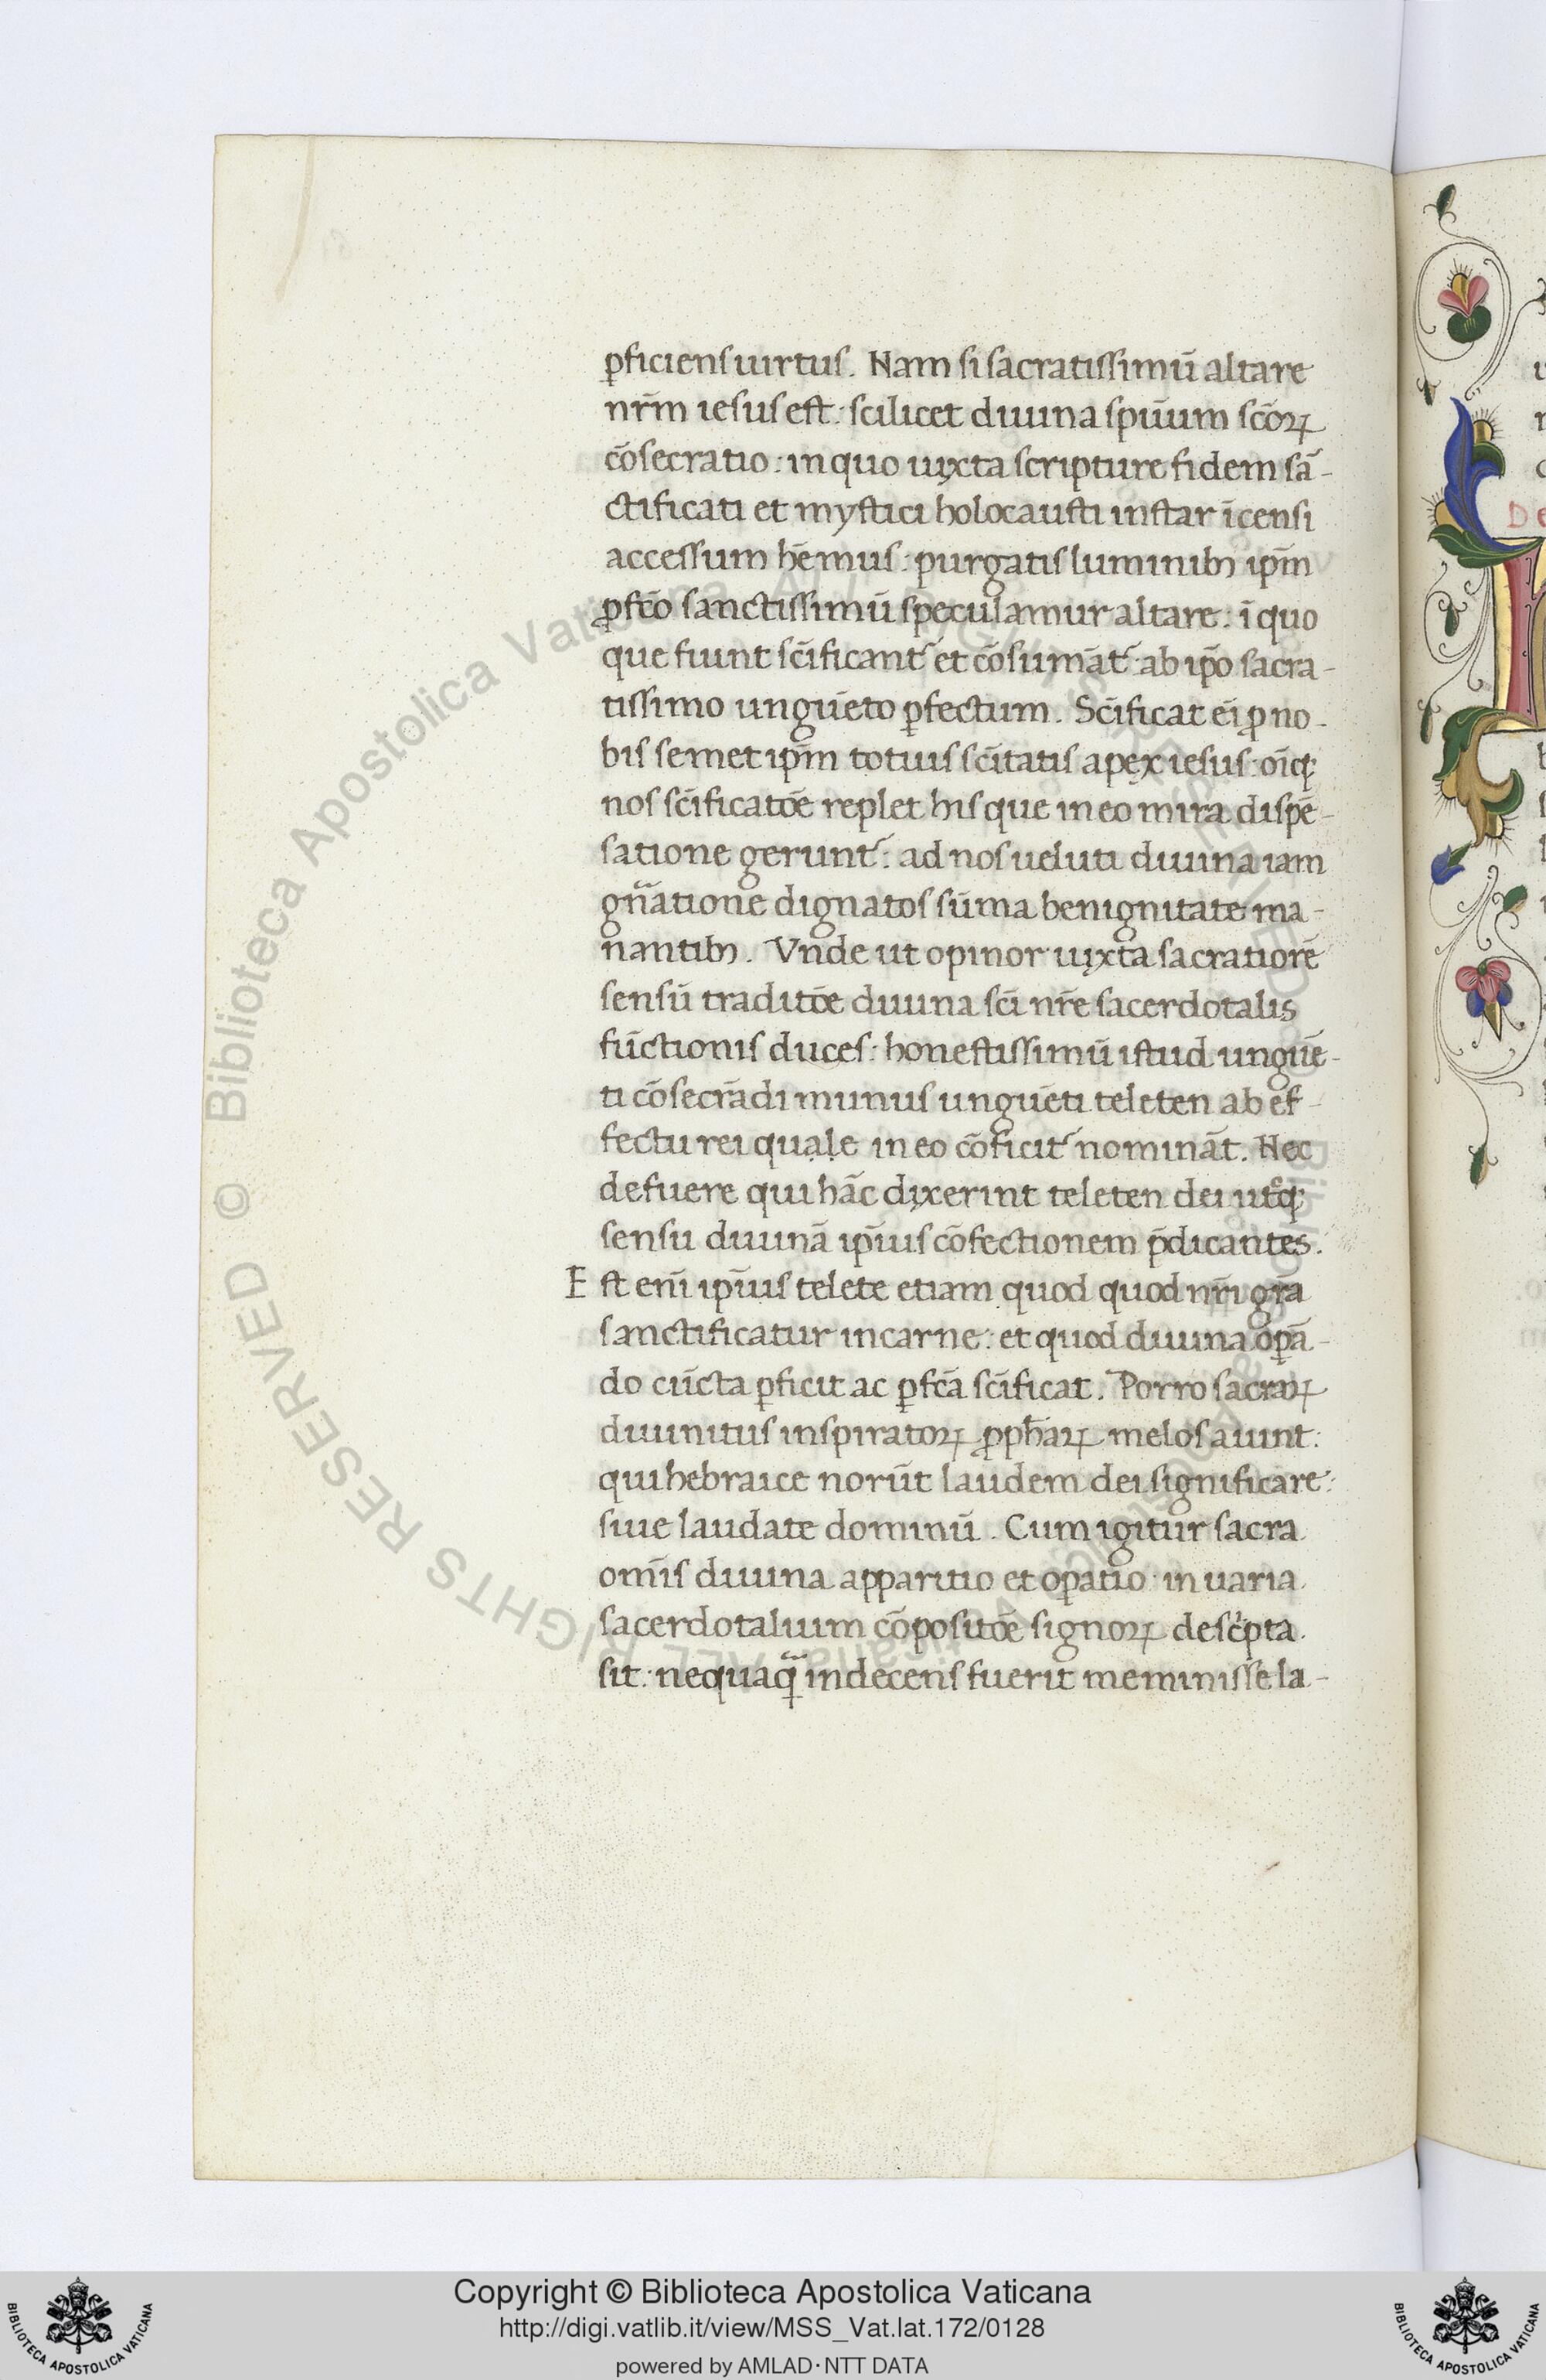 ꝑficiens uirtus. Nam si sacratissimū altare
nr̄m iesus est: scilicet diuina spūum scōꝝ
cōsecratio: in quo iuxta scripture fidem sā-
ctificati et mystici holocausti instar īcensi
accessum hēmus: purgatis luminibꝫ ip̄m
ꝓfēo sanctissimū speculamur altare: ī quo
que fiunt scīficant᷑ et cōsumāt᷑: ab ip̄o sacra-
tissimo unguēto ꝑfectum. Scīficat eī ꝓ no-
bis semet ip̄m totius scītatis apex iesus: oīqꝫ
nos scīficatōe replet his que in eo mira dispē-
satione gerunt᷑: ad nos ueluti diuina iam
gn̄atione dignatos sūma benignitate ma-
nantibꝫ. Vnde ut opinor iuxta sacratiorē
sensū traditōe diuina scī nr̄e sacerdotalis
fūctionis duces: honestissimū istud unguē-
ti cōsecrādi munus unguēti teleten ab ef-
fectu rei quale in eo cōficit᷑ nomināt. Nec
defuere qui hāc dixerint teleten dei utͦqꝫ
sensu diuinā ip̄ius cōfectionem p̄dicantes.
Est enī ip̄ius telete etiam quod quod nr̄i grā
sanctificatur in carne: et quod diuina oꝑā-
do cūcta ꝑficit ac ꝑfcā scīficat. Porro sacraꝝ
diuinitus inspiratoꝝ ꝓpħaꝝ melos aiunt:
qui hebraice norūt laudem dei significare:
siue laudate dominū. Cum igitur sacra
omīs diuina apparitio et oꝑatio: in uaria
sacerdotalium cōpositōe signoꝝ descͥpta
sit: nequaqᷓ indecens fuerit meminisse la-
© Biblioteca Apostolica Vaticana
RIGHTS RESERVED
Copyright © Biblioteca Apostolica Vaticana
http://digi.vatlib.it/view/MSS_Vat.lat.172/0128
powered by AMLAD·NTT DATA
BIBLIOTECA APOSTOLICA VATICANA
BIBLIOTECA APOSTOLICA VATICANA